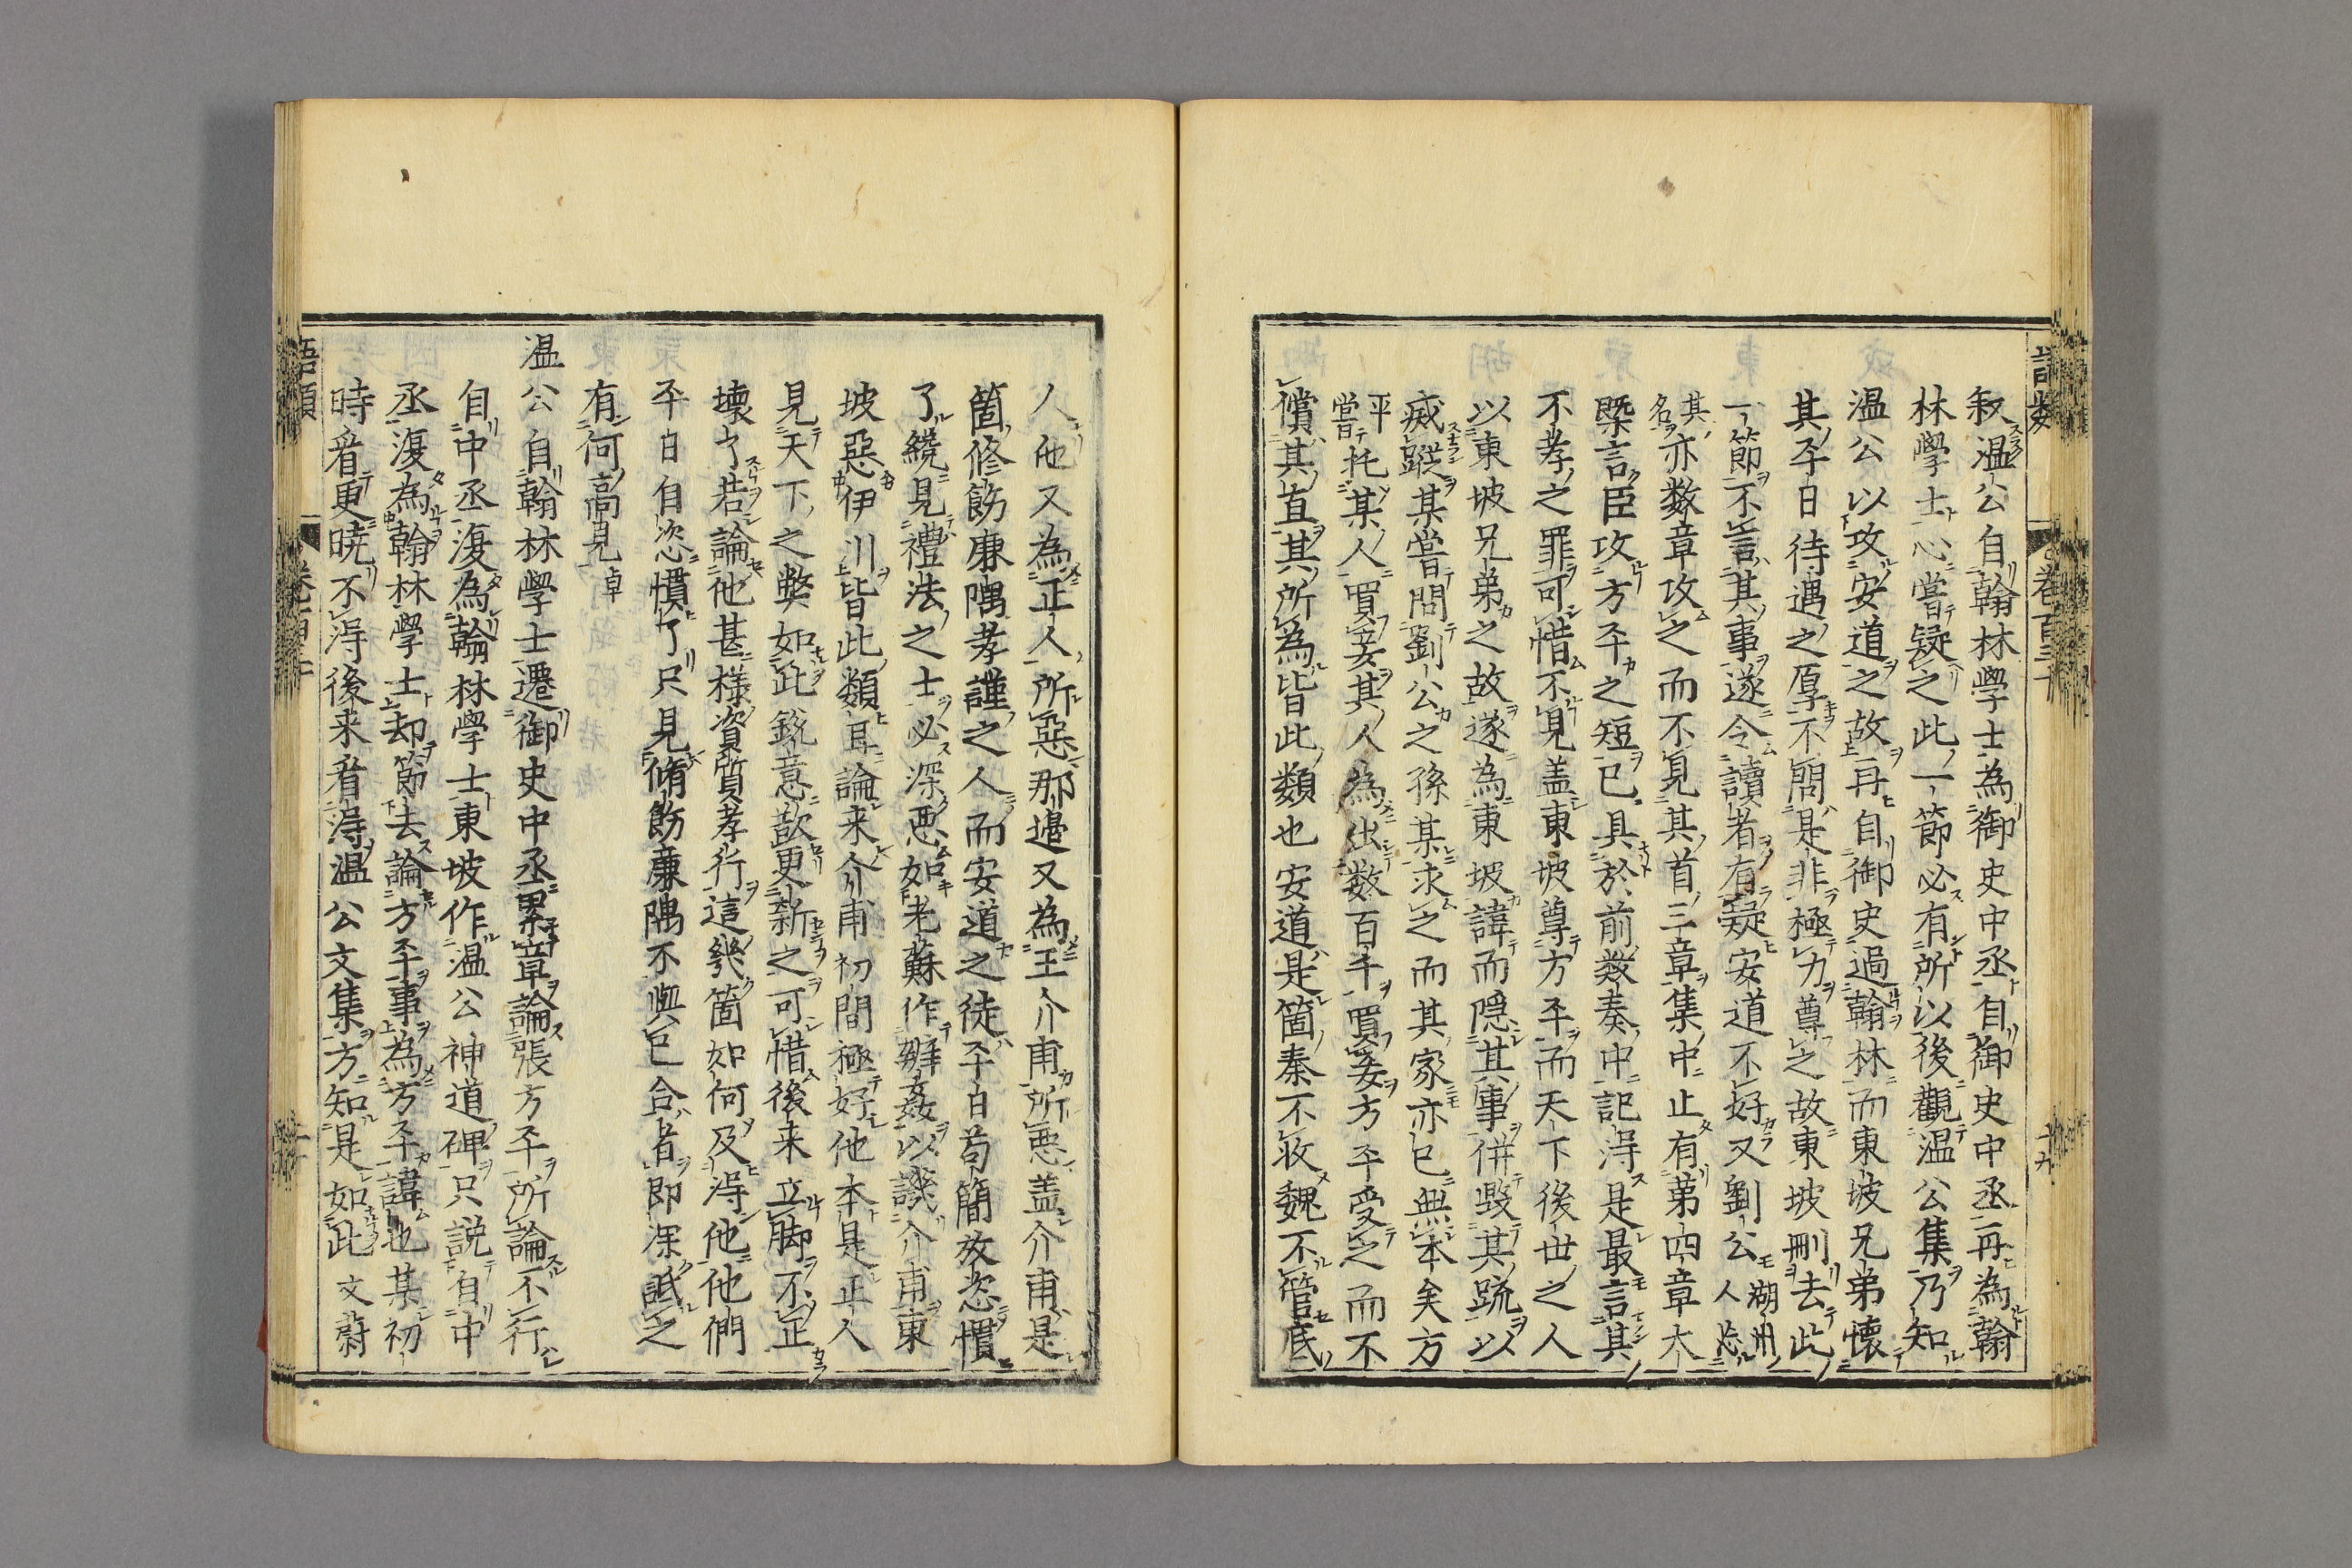 語類 卷百三十 十九
叙温公自翰林學士為御史中丞自御史中丞再為翰
林學士心嘗疑之此一節必有所以後觀温公集乃知
温公以攻安道之故再自御史過翰林而東坡兄弟懷
其平日待遇之厚不問是非極力尊之故東坡刪去此
一節不言其事遂令讀者有疑安道不好又劉公湖州人忘
其名亦数章攻之而不見其首三章集中止有第四章大
槩言臣攻方平之短已具於前数奏中記淂是最言其
不孝之罪可惜不見盖東坡尊方平而天下後世之人
以東坡兄弟之故遂為東坡諱而隠其事併毀其疏以
滅蹤某嘗問劉公之孫某求之而其家亦已無本矣方
平嘗托某人買妾其人為出数百千買妾方平受之而不
償其直其所為皆此類也安道是箇秦不收魏不管底
人他又為正人所惡那邉又為王介甫所悪盖介甫是
箇修飭廉隅孝謹之人而安道之徒平日苟簡放恣慣
了纔見禮法之士必深悪如老蘇作辨姦以譏介甫東
坡惡伊川皆此類耳論来介甫初間極好他本是正人
見天下之弊如此銳意欲更新之可惜後来立脚不正
壊了若論他甚様資質孝行這幾箇如何及淂他他們
平日自恣慣了只見脩飭廉隅不與已合者即深詆之
有何高見 卓
温公自翰林學士遷御史中丞累章論張方平所論不行
自中丞復為翰林學士東坡作温公神道碑只説自中
丞復為翰林學士却節去論方平事為方平諱也某初
時看更暁不淂後来看淂温公文集方知是如此 文蔚
語類